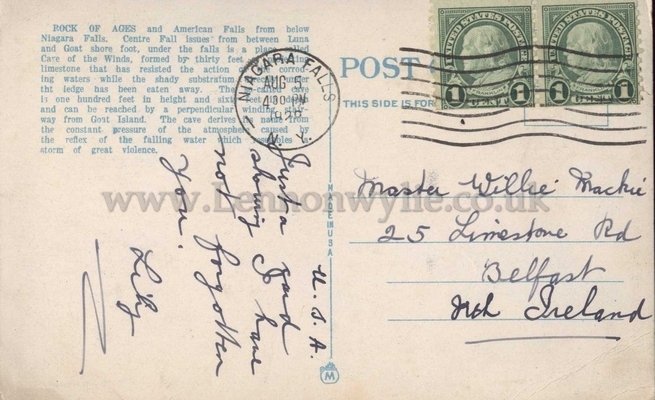 ROCK OF AGES and American Falls from below
Niagara Falls. Centre Fall issues from between Luna
and Goat shore foot, under the falls is a place called
Cave of the Winds, formed by thirty feet
limestone that has resisted the action of the corrod-
ing waters while the shady substratum under
the ledge has been eaten away. The cave
is one hundred feet in height and sixty feet in depth
and can be reached by a perpendicular winding
way from Goat Island. The cave derives its name from
the constant pressure of the atmosphere caused by
the reflex of the falling water which resembles a
storm of great violence.
NIAGARA FALLS
AUG 5
4 30 PM
N. Y.
UNITED STATES POSTAGE
1 CENT 1
UNITED STATES POSTAGE
1 CENT 1
POST C
THIS SIDE IS FOR
MADE IN USA
M
U.S.A.
Just a card
showing I have
not forgotten
you.
Lily
Master Willie Mackie
25 Limestone Rd
Belfast
Nth Ireland
www.Lennonwylie.co.uk